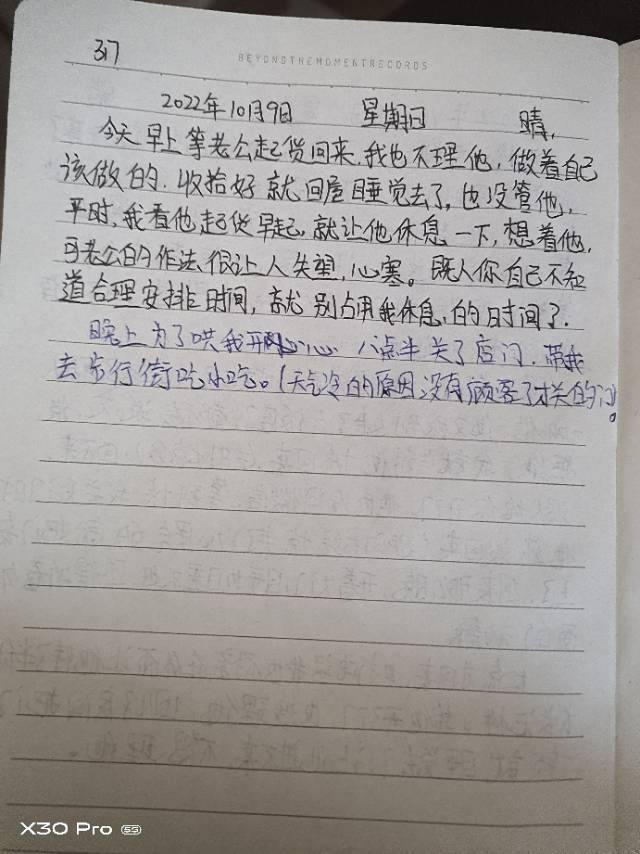 317
BEYONDTHEMOMENTRECORDS
2022年10月9日 星期日 晴,
今天早上等老公起货回来,我也不理他,做着自己
该做的.收拾好就回屋睡觉去了,也没管他,
平时,我看他起货早起,就让他休息一下,想着他,
可老公的作法很让人失望,心寒。既人你自己不知
道合理安排时间,就别占用我休息,的时间了.
晚上为了哄我开心 八点半关了店门.带我
去步行街吃小吃。(天气冷的原因没有顾客了才关的门)。
X30 Pro 5G